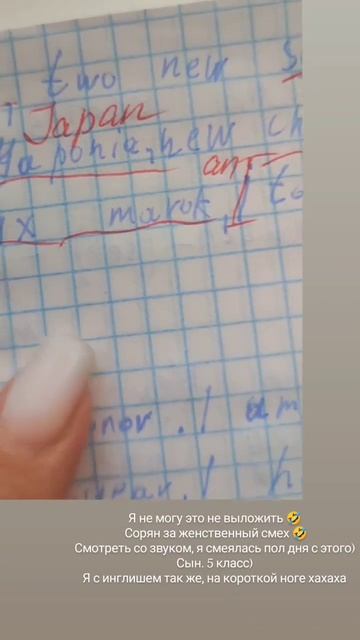 two new s
Japan
Yaponia, new ch
an
ix marok, to
nov . / am
/ h
Я не могу это не выложить 🤣
Сорян за женственный смех 🤣
Смотреть со звуком, я смеялась пол дня с этого)
Сын. 5 класс)
Я с инглишем так же, на короткой ноге хахаха